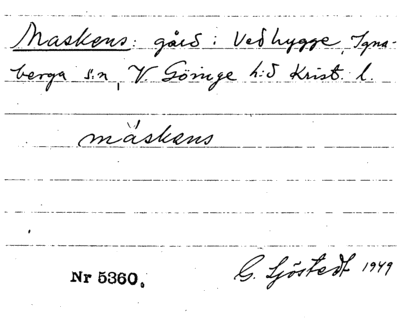 Maskens: gård i Vedhygge, Igna-
berga s:n, V. Göinge h:d Krist. l.
máskens
Nr 5360.
G. Sjöstedt 1949